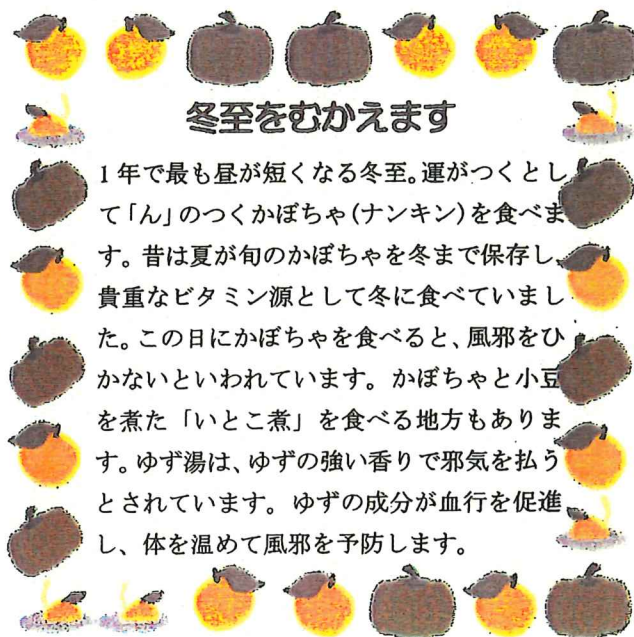 冬至をむかえます
1年で最も昼が短くなる冬至。運がつくとし
て「ん」のつくかぼちゃ(ナンキン)を食べま
す。昔は夏が旬のかぼちゃを冬まで保存し、
貴重なビタミン源として冬に食べていまし
た。この日にかぼちゃを食べると、風邪をひ
かないといわれています。かぼちゃと小豆
を煮た「いとこ煮」を食べる地方もありま
す。ゆず湯は、ゆずの強い香りで邪気を払う
とされています。ゆずの成分が血行を促進
し、体を温めて風邪を予防します。